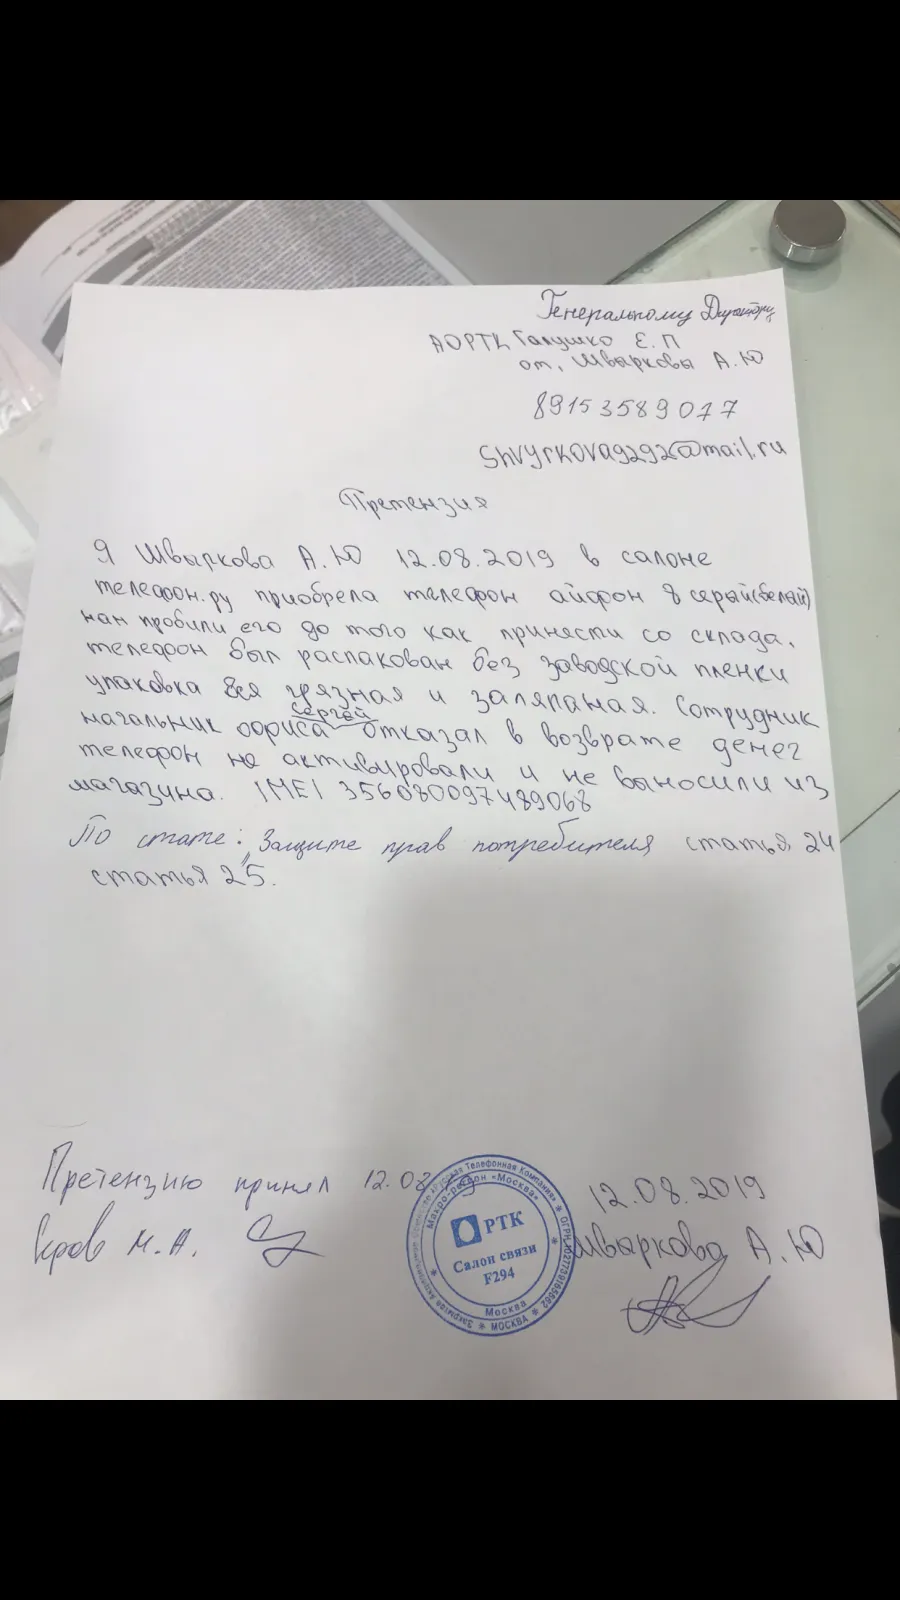 Генеральному Директору
АОРТК Галушко Е.П
от, Швырковы А.Ю
89153589077
Shvyrkova9292@mail.ru
Претензия
Я Швыркова А.Ю 12.08.2019 в салоне
телефон.ру приобрела телефон айфон 8 серый(белай)
нам пробили его до того как принести со склада,
телефон был распакован без заводской пленки
упаковка вся грязная и заляпаная. Сотрудник
сергей
начальник оофиса отказал в возврате денег
телефон не активировали и не выносили из
магазина. IMEI 356080097489068
По стате: Защите прав потребителя статья 24
статья 25.
Претензию принял 12.08.19
М.А.
12.08.2019
Швыркова А.Ю
РТК
Салон связи
F294
Москва
Макро-регион «Москва»
Закрытое акционерное общество «Русская Телефонная Компания» ОГРН 1027739165662 МОСКВА